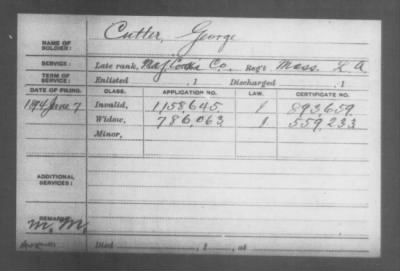 NAME OF SOLDIER: Cutter, George
SERVICE: Late rank, Co., Reg't Mass. L. A.
TERM OF SERVICE: Enlisted , 1 Discharged , 1
DATE OF FILING. CLASS. APPLICATION NO. LAW. CERTIFICATE NO.
1894 June 7 Invalid, 1,158,645. 893,659.
Widow, 786,063 559,233
Minor,
ADDITIONAL SERVICES:
REMARKS:
M. M.
Died , 1 , at